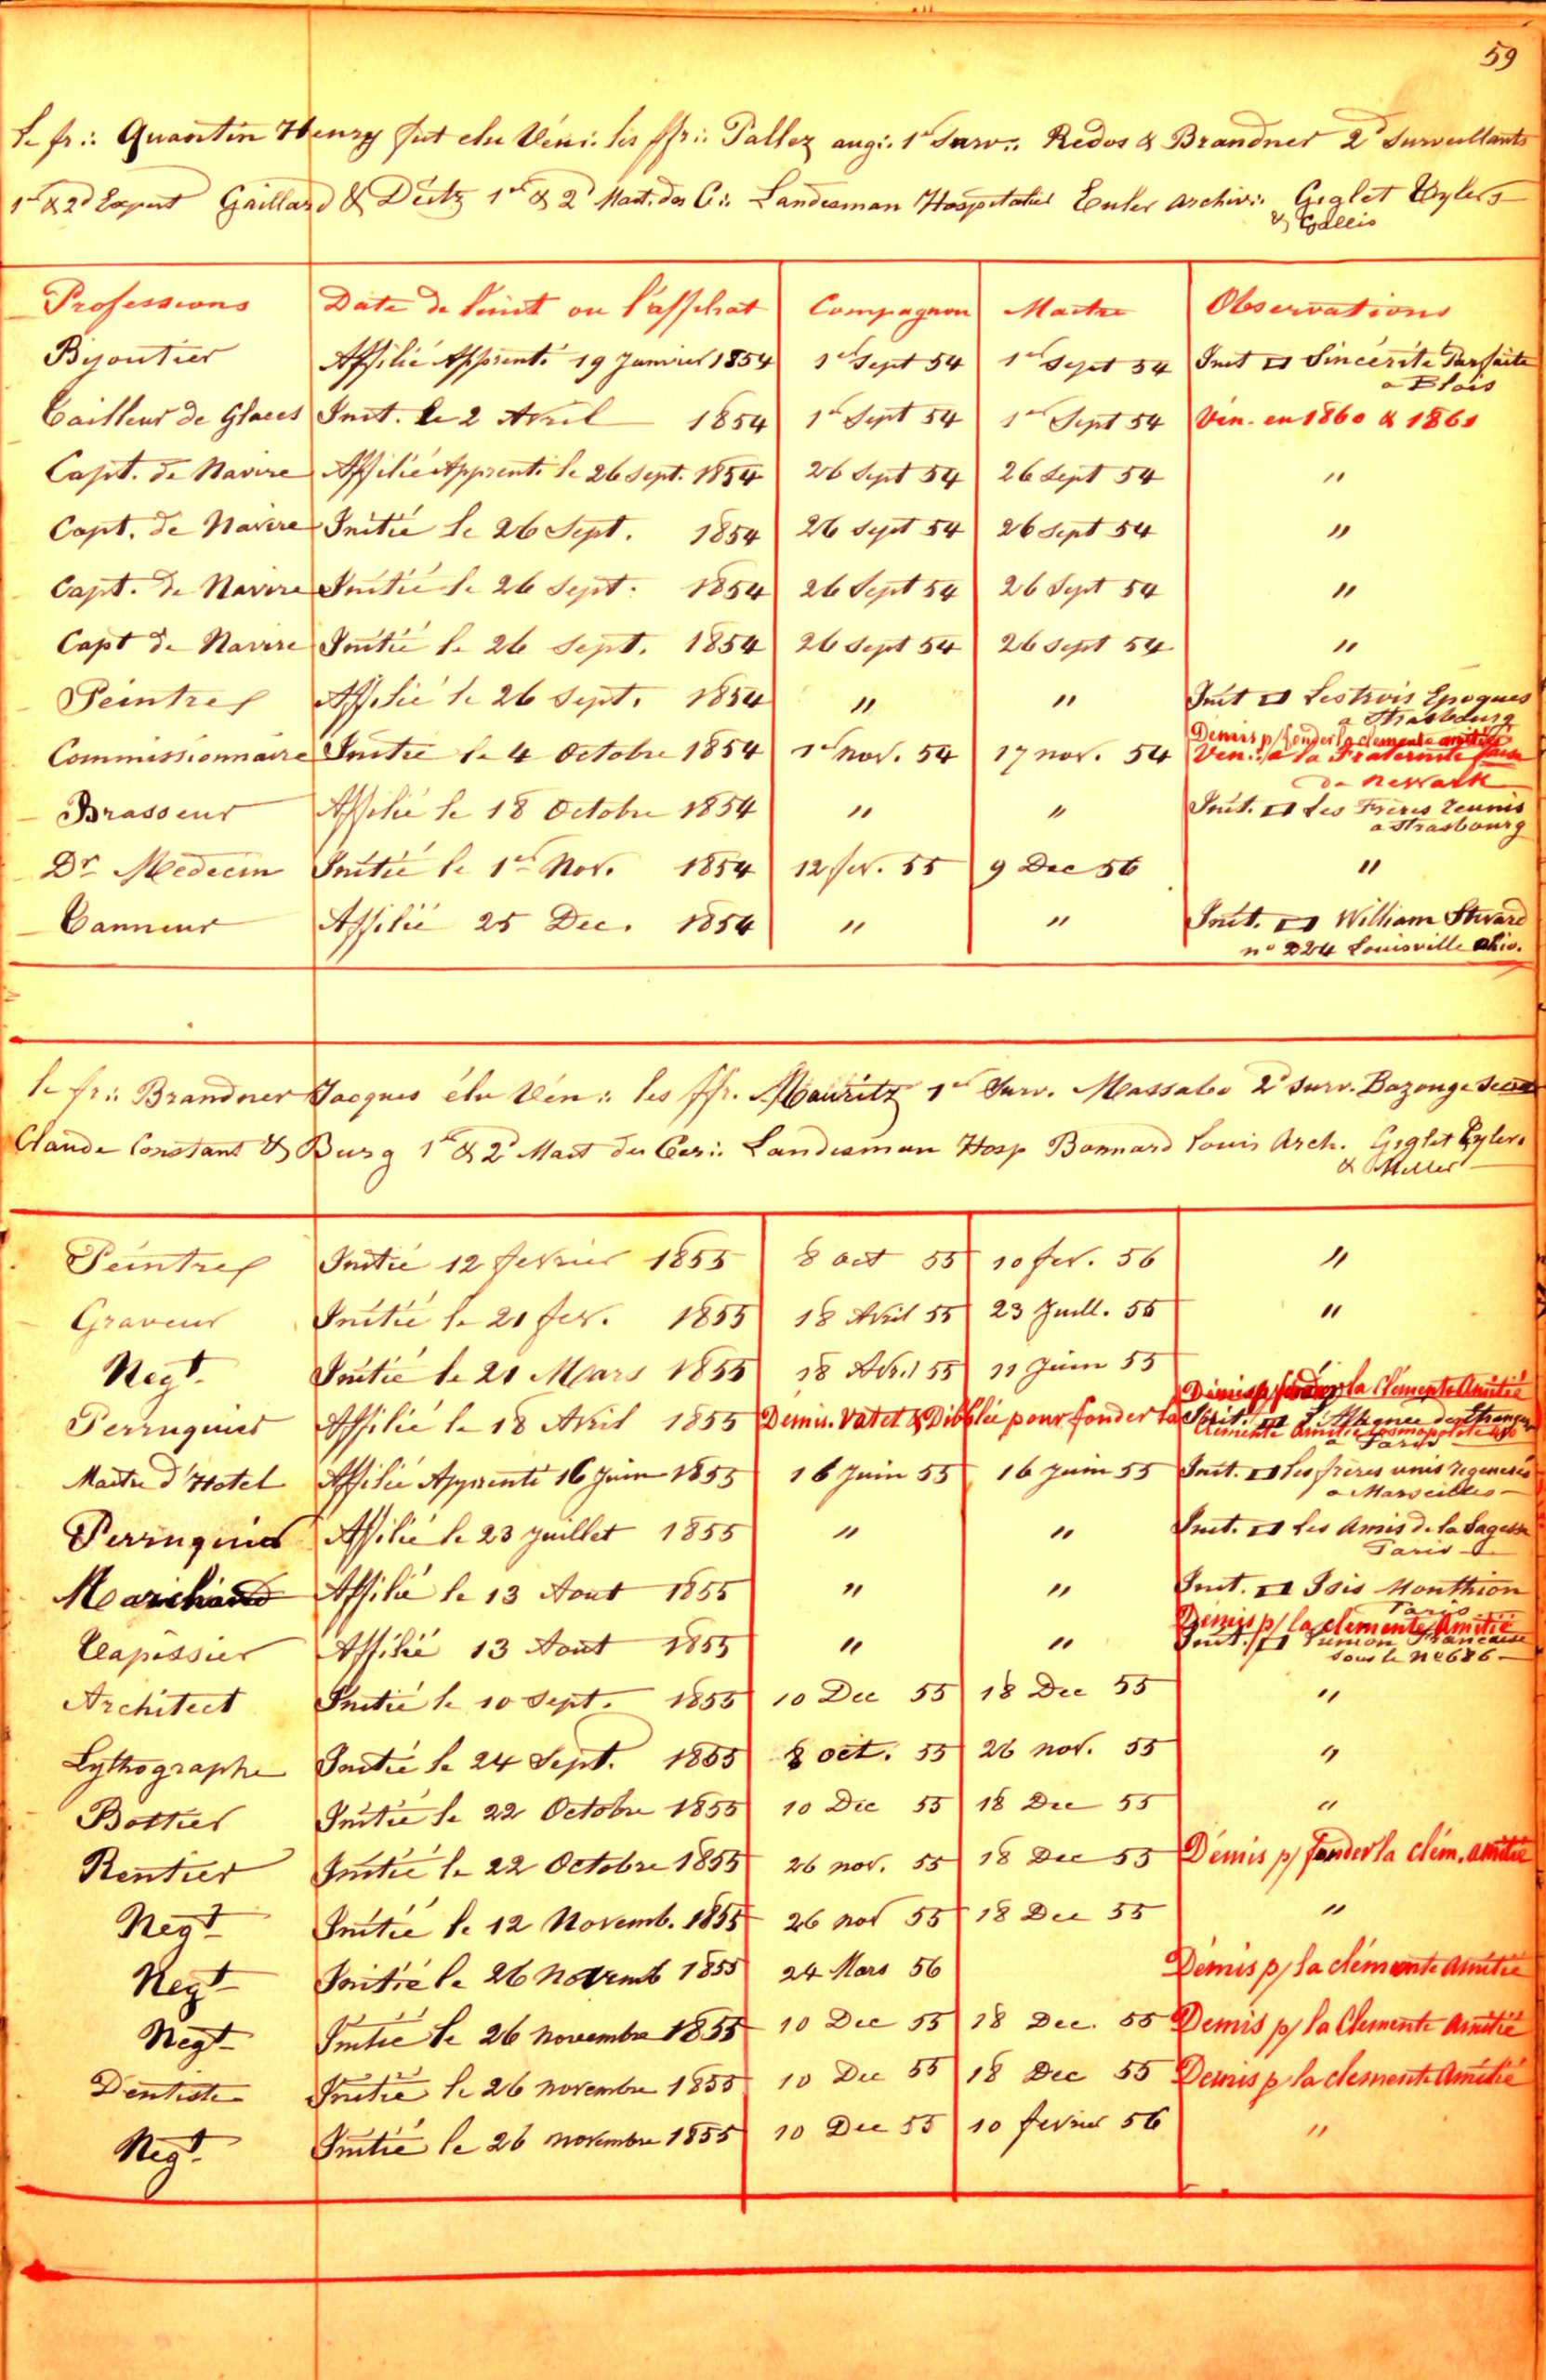 59
Le fr∴ Quantin Henry fut élu Vén∴ les ffr∴ Pallez aug∴ 1er Surv∴ Redos & Brandner 2d Surveillants
1er & 2d Expert Gaillard & Deitz 1er & 2d Mait. des C∴ Landesman Hospitalier Euler archiv∴ Geglet Eylers
& Gallis
Professions Date de l'init ou l'affiliat Compagnon Maitre Observations
Bijoutier Affilié Apprenti 19 Janvier 1854 1er Sept 54 1er Sept 54 Init □ Sincérité Parfaite
a Blois
Tailleur de Glaces Init. le 2 Avril 1854 1er Sept 54 1er Sept 54 Vén. en 1860 & 1861
Capt. de Navire Affilié Apprenti le 26 Sept. 1854 26 Sept 54 26 Sept 54 "
Capt. de Navire Initié le 26 Sept. 1854 26 Sept 54 26 Sept 54 "
Capt. de Navire Initié le 26 Sept. 1854 26 Sept 54 26 Sept 54 "
Capt de Navire Initié le 26 Sept. 1854 26 Sept 54 26 Sept 54 "
Peintre Affilié le 26 Sept. 1854 " " Init □ Les trois Epoques
a Strasbourg
Demis p/ fonder la clemente amitié
Commissionnaire Initié le 4 Octobre 1854 1er Nov. 54 17 nov. 54 Ven∴ a la Fraternité
de Newark
Brasseur Affilié le 18 Octobre 1854 " " Init. □ Les Frères Reunis
a Strasbourg
Dr Medecin Initié le 1er Nov. 1854 12 fev. 55 9 Dec 56 "
Tanneur Affilié 25 Dec. 1854 " " Init. □ William Stward
no 224 Louisville Ohio.
le fr∴ Brandner Jacques élu Vén∴ les ffr. Mauritz 1er Surv. Massabo 2d Surv. Bazonge
Claude Constant & Burg 1er & 2d Mait des Cer∴ Landesman Hosp Bonnard Louis Arch. Geglet Eylers
& Miller
Peintre Initié 12 fevrier 1855 8 oct 55 10 fev. 56 "
Graveur Initié le 21 fev. 1855 18 Avril 55 23 Juill. 55 "
Negt. Initié le 21 Mars 1855 18 Avril 55 11 Juin 55
Démis p/ fonder la Clémente Amitié
Perruquier Affilié le 18 Avril 1855 Demis. Vatet & Dibblée pour fonder la Init. □ L'Athenee des Etrangers
Clemente Amitié Cosmopolite
a Paris
Maitre d'Hotel Affilié Apprenti 16 Juin 1855 16 Juin 55 16 Juin 55 Init. □ Les frères unis regeneres
a Marseilles
Perruquier Affilié le 23 Juillet 1855 " " Init. □ Les Amis de la Sagesse
Paris
Marchand Affilié le 13 Aout 1855 " " Init. □ Isis Monthion
Paris
Démis p/ la clemente Amitié
Tapissier Affilié 13 Aout 1855 " " Init. □ l'union Française
sous le No 686
Architect Initié le 10 Sept. 1855 10 Dec 55 18 Dec 55 "
Lythographe Initié le 24 Sept. 1855 8 oct. 55 26 nov. 55 "
Bottier Initié le 22 Octobre 1855 10 Dec 55 18 Dec 55 "
Rentier Initié le 22 Octobre 1855 26 nov. 55 18 Dec 55 Démis p/ fonder la clém. amitié
Negt Initié le 12 Novemb. 1855 26 nov 55 18 Dec 55 "
Negt Initié le 26 Novemb 1855 24 Mars 56 Démis p/ la clémente amitié
Negt Initié le 26 novembre 1855 10 Dec 55 18 Dec. 55 Demis p/ la Clemente amitié
Dentiste Initié le 26 novembre 1855 10 Dec 55 18 Dec 55 Demis p/ la clemente Amitié
Negt. Initié le 26 novembre 1855 10 Dec 55 10 fevrier 56 "